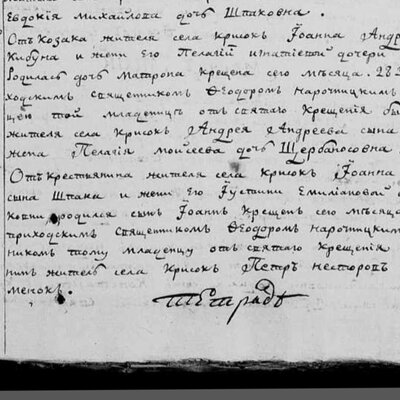 Евдокія Михайлова дочь Шпаковна.
Отъ козака жителя села Крисокъ Іоанна Андр
Кибуна и жены Его Пелагіи Игнатіевой дочери
родилась дочь Матрона крещена сего мѣсяца. 28
ходскимъ священникомъ Ѳеодоромъ Нарочницкимъ
цею той младеницѣ отъ святаго Крещенія бы
жителя села Крисокъ Андрея Андреева сына
жена Пелагія Моисеева дочь Щербаносовна.
Отъ крестьянина жителя села Крисокъ Іоанна
сына Шпака и жены Его Іустины Емиліановой
родился сынъ Іоаннъ крещенъ сего мѣсяца
приходскимъ священникомъ Ѳеодоромъ Нарочницким
никомъ тому младенцу отъ святаго Крещенія
житель села Крисокъ Петръ Несторовъ
менокъ.